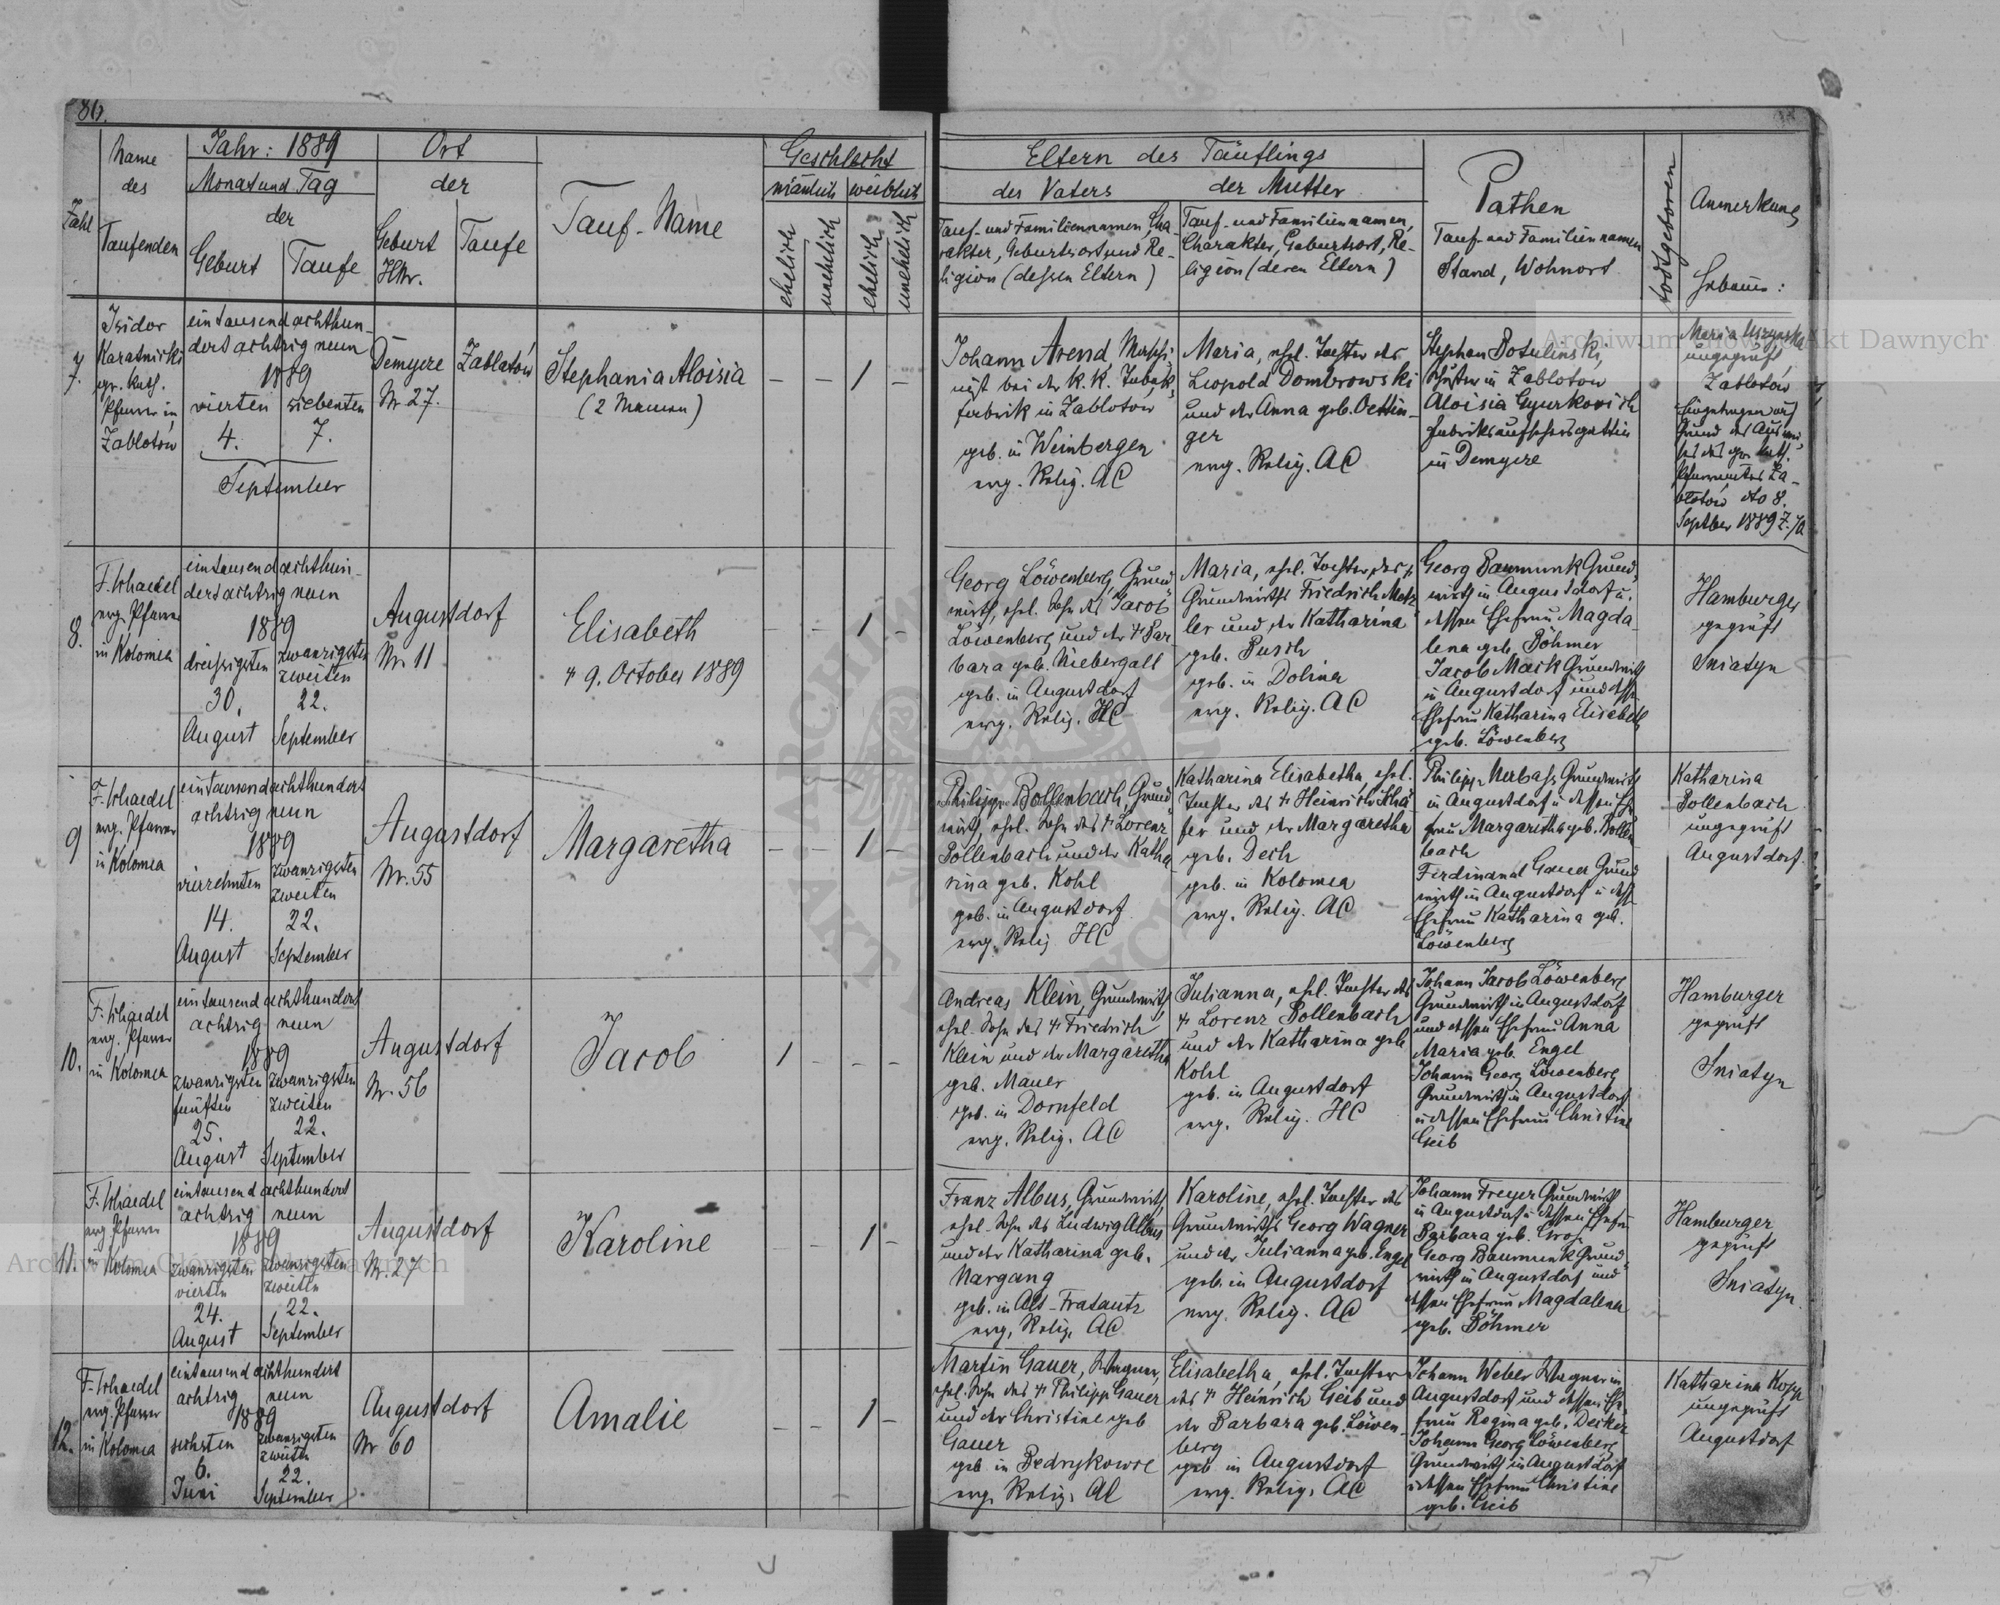 86.
Zahl
Name
des
Taufenden
Jahr: 1889
Monat und Tag
der
Geburt
Taufe
Ort
der
Geburt
HNr.
Taufe
Tauf-Name
Geschlecht
männlich
weiblich
ehelich
unehelich
ehelich
unehelich
Eltern des Täuflings
des Vaters
der Mutter
Tauf- und Familiennamen, Cha-
rakter, Geburtsort und Re-
ligion (dessen Eltern)
Tauf- und Familiennamen,
Charakter, Geburtsort, Re-
ligion (deren Eltern)
Pathen
Tauf- und Familiennamen
Stand, Wohnort
todtgeboren
Anmerkung
Hebamme:
7.
Isidor
Karatnicki
gr. kath.
Pfarrer in
Zablotów
eintausend achthun-
dert achtzig neun
1889
vierten
siebenten
4.
7.
September
Demycze
Nr 27.
Zablatów
Stephania Aloisia
(2 Namen)
– – 1 –
Johann Arend, Maschi-
nist bei der k.k. Tabak-
fabrik in Zablotów
geb. in Weinbergen
evg. Relig. AC
Maria, ehel. Tochter des
Leopold Dombrowski
und der Anna geb. Oettin-
ger
evg. Relig. AC
Stephan Botulinski,
in Zablotów
Aloisia Gyurkovich
Fabriksaufsehersgattin
in Demycze
Maria
ungeprüft
Zablotów
Eingetragen auf
Grund des Auswei-
ses des gr. kath.
Pfarramtes Za-
blotów dto 8.
Septber 1889 Z. 70
8.
F. Schaedel
evg. Pfarrer
in Kolomea
eintausend achthun-
dert achtzig neun
1889
dreißigsten
zwanzigsten
zweiten
30.
22.
August
September
Augustdorf
Nr. 11
Elisabeth
† 9. October 1889
– – 1 –
Georg Löwenberg, Grund-
wirth, ehel. Sohn des Jacob
Löwenberg und der † Bar-
bara geb. Niebergall
geb. in Augustdorf
evg. Relig. HC
Maria, ehel. Tochter des †
Grundwirths Friedrich Metz-
ler und der Katharina
geb. Busch
geb. in Dolina
evg. Relig. AC
Georg Baumunk Grund-
wirth in Augustdorf u.
dessen Ehefrau Magda-
lena geb. Böhmer
Jacob Mark Grundwirth
in Augustdorf und dessen
Ehefrau Katharina Elisabeth
geb. Löwenberg
Hamburger
geprüft
Sniatyn
9
F. Schaedel
evg. Pfarrer
in Kolomea
eintausend achthundert
achtzig neun
1889
vierzehnten
zwanzigsten
zweiten
14.
22.
August
September
Augustdorf
Nr. 55
Margaretha
– – 1 –
Philipp Bollenbach, Grund-
wirth, ehel. Sohn des † Lorenz
Bollenbach und der Katha-
rina geb. Kohl
geb. in Augustdorf
evg. Relig HC
Katharina Elisabetha, ehel.
Tochter des † Heinrich Schä-
fer und der Margaretha
geb. Dech
geb. in Kolomea
evg. Relig. AC
Philipp Grundwirth
in Augustdorf u dessen Ehe-
frau Margaretha geb. Bollen-
bach
Ferdinand Gauer Grund-
wirth in Augustdorf u dessen
Ehefrau Katharina geb.
Löwenberg
Katharina
Bollenbach
ungeprüft
Augustdorf.
10.
F. Schaedel
evg. Pfarrer
in Kolomea
eintausend achthundert
achtzig neun
1889
zwanzigsten
fünften
zwanzigsten
zweiten
25.
22.
August
September
Augustdorf
Nr. 56
Jacob
1 – – –
Andreas Klein, Grundwirth
ehel. Sohn des † Friedrich
Klein und der Margaretha
geb. Mauer
geb. in Dornfeld
evg. Relig. AC
Julianna, ehel. Tochter des
† Lorenz Bollenbach
und der Katharina geb
Kohl
geb. in Augustdorf
evg. Relig. HC
Johann Jacob Löwenberg
Grundwirth in Augustdorf
und dessen Ehefrau Anna
Maria geb. Engel
Johann Georg Löwenberg
Grundwirth in Augustdorf
u dessen Ehefrau Christine
Geib
Hamburger
geprüft
Sniatyn
11.
F. Schaedel
evg. Pfarrer
in Kolomea
eintausend achthundert
achtzig neun
1889
zwanzigsten
vierten
zwanzigsten
zweiten
24.
22.
August
September
Augustdorf
Nr. 27
Karoline
– – 1 –
Franz Albus, Grundwirth
ehel. Sohn des Ludwig Albus
und der Katharina geb.
Nargang
geb. in Alt-Fratautz
evg. Relig. AC
Karoline, ehel. Tochter des
Grundwirths Georg Wagner
und der Julianna geb. Engel
geb. in Augustdorf
evg. Relig. AC
Johann Freyer Grundwirth
in Augustdorf u dessen Ehefrau
Barbara geb. Groß
Georg Baumunk Grund-
wirth in Augustdorf und
dessen Ehefrau Magdalena
geb. Böhmer
Hamburger
geprüft
Sniatyn.
12.
F. Schaedel
evg. Pfarrer
in Kolomea
eintausend achthundert
achtzig neun
1889
sechsten
zwanzigsten
zweiten
6.
22.
Juni
September
Augustdorf
Nr 60
Amalie
– – 1 –
Martin Gauer, Wagner,
ehel. Sohn des † Philipp Gauer
und der Christine geb
Gauer
geb in Bedrykowce
evg. Relig. AC
Elisabetha, ehel. Tochter
des † Heinrich Geib und
der Barbara geb. Löwen-
berg
geb in Augustdorf
evg. Relig. AC
Johann Weber Wagner in
Augustdorf und dessen Ehe-
frau Regina geb. Decker
Johann Georg Löwenberg
Grundwirth in Augustdorf
u dessen Ehefrau Christine
geb. Geib
Katharina Kopp
ungeprüft
Augustdorf
Archiwum Główne Akt Dawnych
Archiwum Główne Akt Dawnych